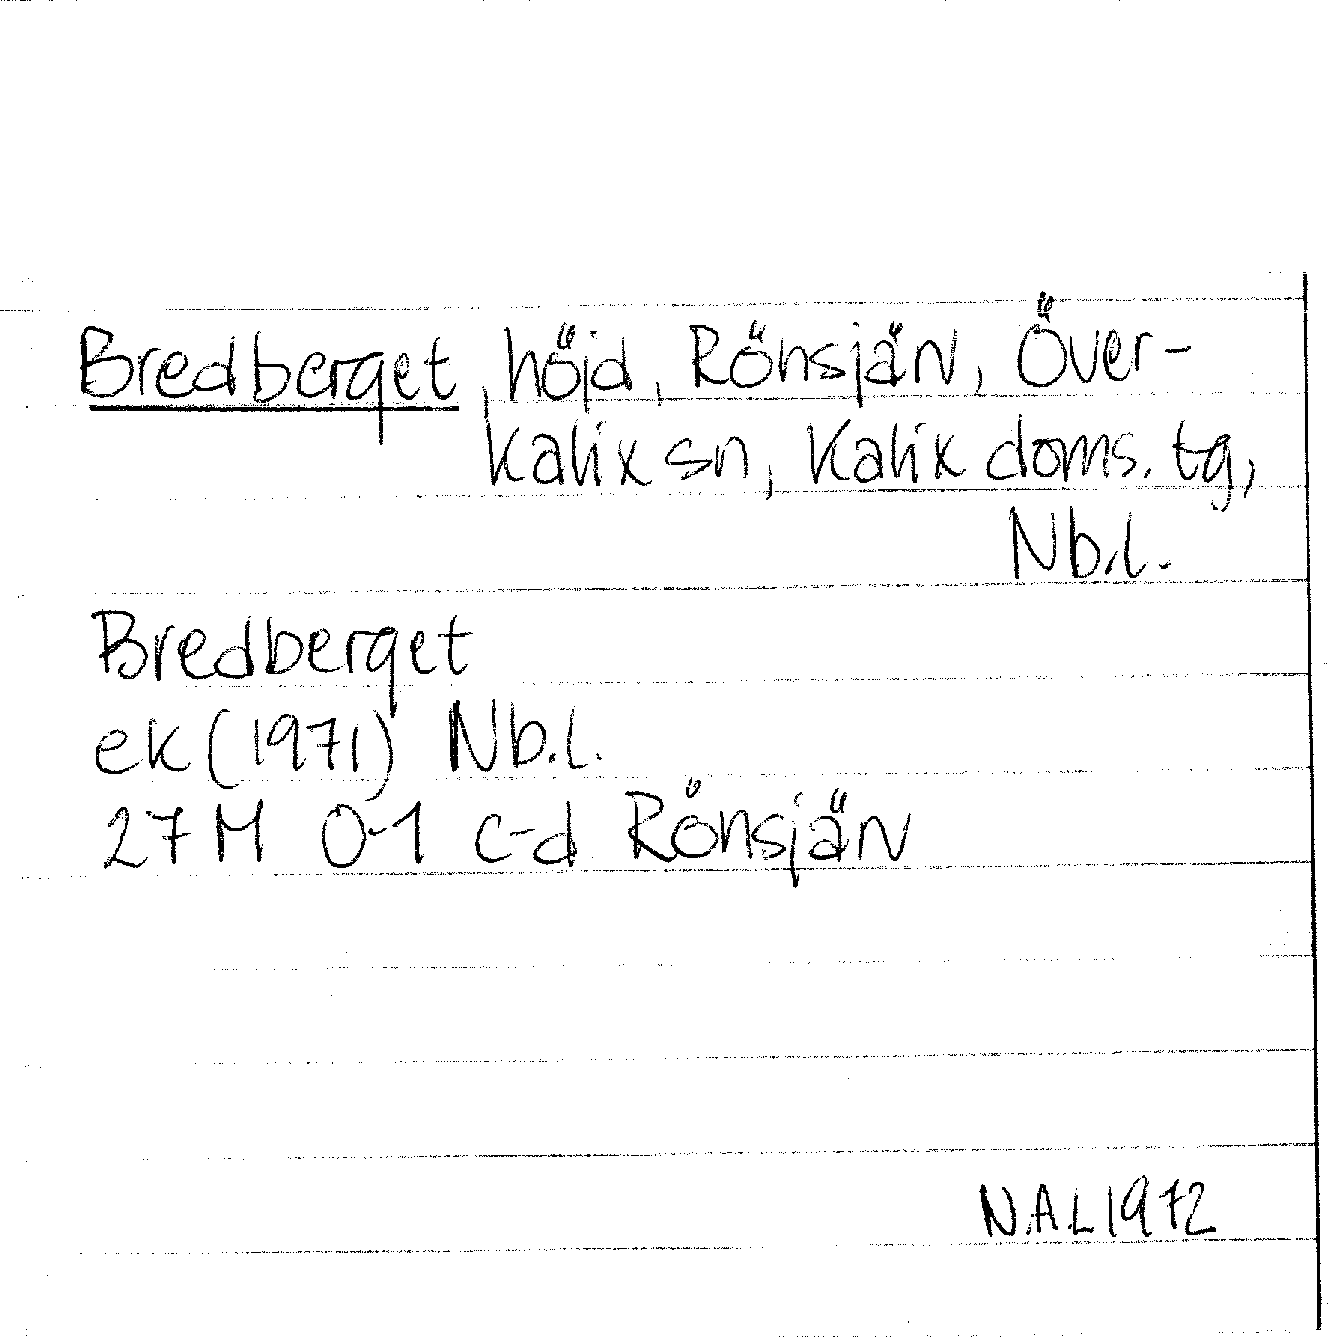 Bredberget, höjd, Rönsjän, Över-
kalix sn, Kalix doms. tg,
Nb.l.
Bredberget
ek (1971) Nb.l.
27 M 0-1 c-d Rönsjän
N.A.L 1972